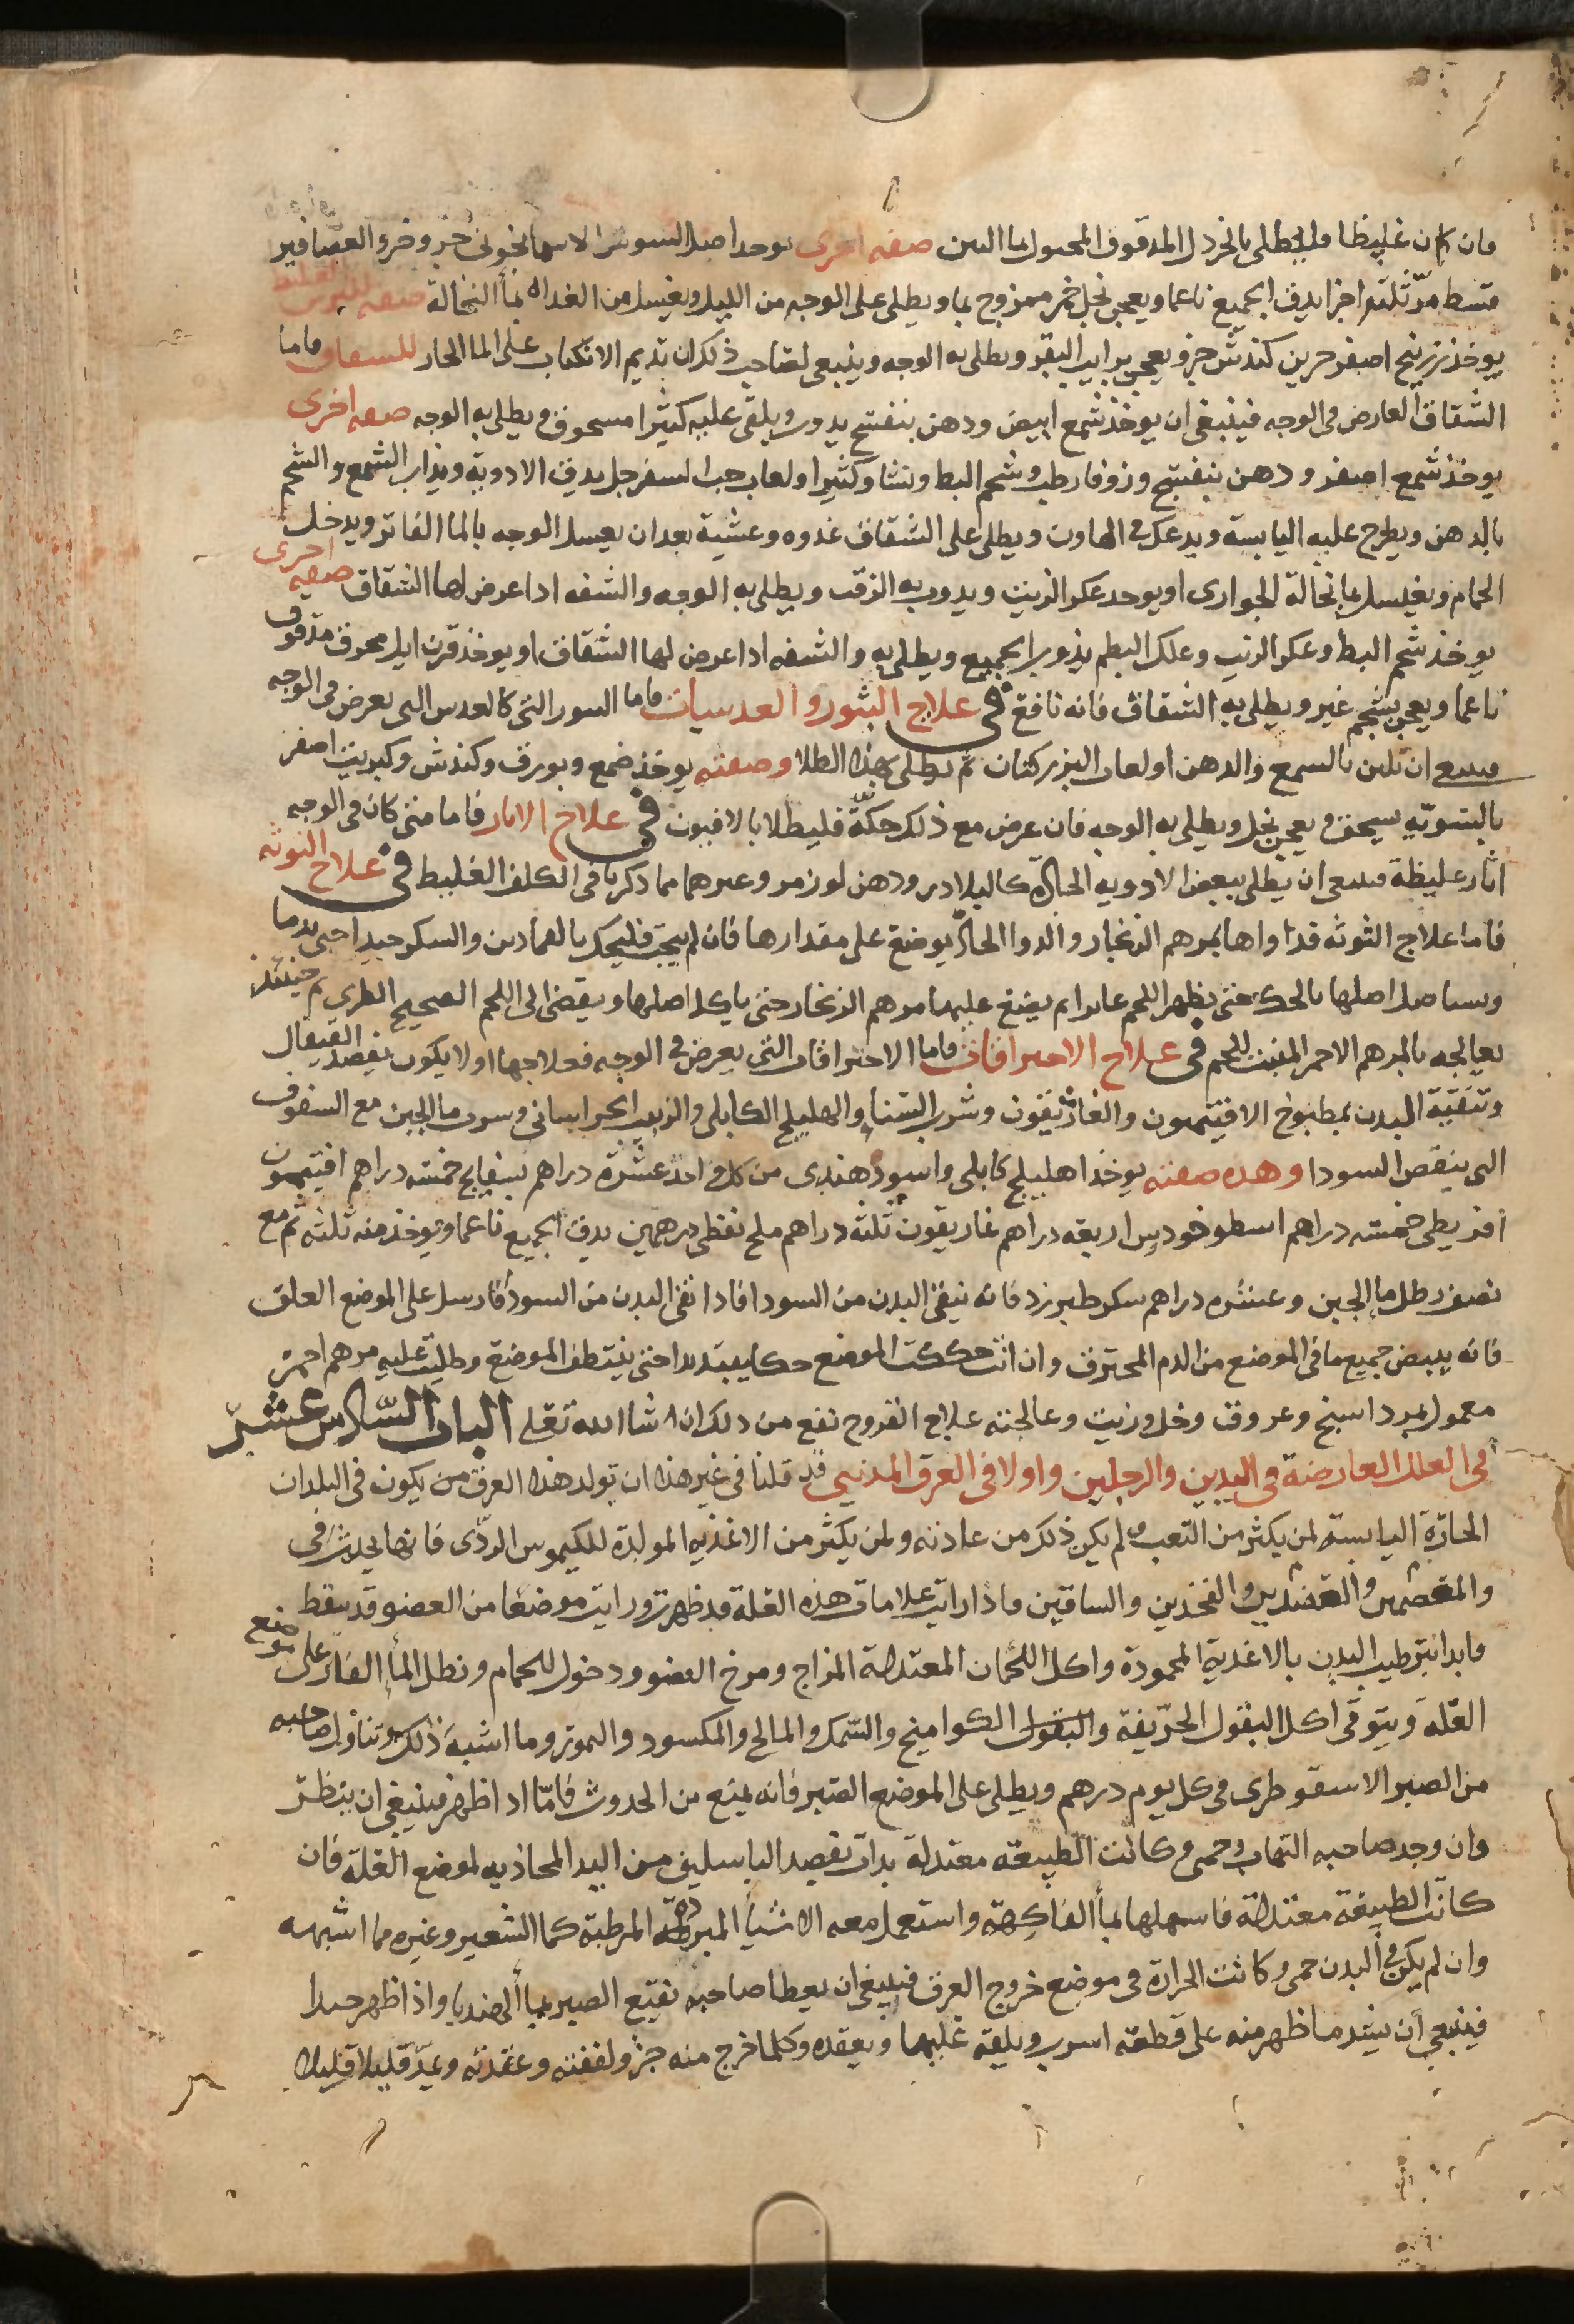 فان كان غليظا فليطلى بالخردل المدقوق المعمول بما التين صفه اخرى يوخد اصل السوسن الاسمانجونى خبز وخرو العصافير
قسط مرّ ثلثه اجزا يدق الجميع ناعما ويعجن بخل خمر ممزوج بما ويطلى على الوجه من الليل ويغسل من الغداه بمأ النخالة صفه
يوخذ زرنيخ اصفر جزين كندش جزو يعجن برايب البقر ويطلى به الوجه وينبغى لصاحب ذلك ان يديم الانكباب على الما الحار للسقاق فاما
الشقاق العارض فى الوجه فينبغى ان يوخذ شمع ابيض ودهن بنفسج يدوب ويلقى عليه كثيرا مسحوق ويطلى به الوجه صفه اخرى
يوخذ شمع اصفر ودهن بنفسج وزوفا رطب وشحم البط ونشا وكثيرا ولعاب حب السفرجل يدق الادوية ويذاب الشمع والشحم
بالدهن ويطرح عليه اليابسة ويدعك فى الهاون ويطلى على الشقاق غدوه وعشية بعد ان يغسل الوجه بالما الفاتر ويدخل
الحمام ويغسل بما نخالة الجوارى او يوحد عكر الزيت ويدوب به الزفت ويطلى به الوجه والشفه اذا عرض لها الشقاق صفه اخرى
يوخذ شحم البط وعكر الزيت وعلك البطم يذوب الجميع ويطلى به والشفه اذا عرض لها الشقاق او يوخذ قرن ايل محرق مدقوق
ناعما ويعجن بشحم غير ويطلى به الشقاق فانه نافع فى علاج البثور والعدسيات فاما البثور التى كالعدس التى يعرض فى الوجه
فينبغى ان تلين بالشمع والدهن او لعاب البزر كتان ثم يطلى بهذا الطلا وصفته يوخذ ضمع وبورق وكندش وكبريت اصفر
بالسويّه يسحق ويعجن بخل ويطلى به الوجه فان عرض مع ذلك حكّة فليطلا بالافيون فى علاج الاثار فاما متى كان فى الوجه
اثار غليظة فينبغى ان يطلى ببعض الادويه الحارّه كالبلادر ودهن لوز مر وغيرهما مما ذكرنا فى الكلف الغليظ فى علاج التوثه
فاما علاج التوثه فداواها بمرهم الزنجار والدوا الحادّ يوضع على مقدارها فان لم يجب فليحك بالقمادين والسكر جيدا حتى يدما
ويستاصل اصلها بالحك حتى يظهر اللحم غايرا ثم يضع عليها مرهم الزنجار حتى ياكل اصلها ويقضى الى اللحم الصحيح الطرى ثم حينئذ
يعالجه بالمرهم الاحمر المنبت للحم فى علاج الاحتراقات فاما الاحتراقات التى يعرض فى الوجه فعلاجها اولا يكون بفصد القيفال
وتنقية البدن بمطبوخ الافتيمون والغاريقون وشرب السنا والهليلج الكابلى والزبيب الخراسانى وشرب ما الجبن مع السفوف
التى ينقص السودا وهذه صفته يوخذ اهليلج كابلى واسود هندى من كل واحد عشرة دراهم بسفايج خمسه دراهم افتيمون
اقريطى خمسه دراهم اسطوخودس اربعه دراهم غاريقون ثلثه دراهم ملح نفطى درهمين يدق الجميع ناعما ويوخذ منه ثلثه ثم مع
نصف رطل ما الجبن وعشره دراهم سكر طبرزد فانه ينقى البدن من السودا فاذا نقى البدن من السودأ فارسل على الموضع العلق
فانه يبيض جميع ما فى الموضع من الدم المحترق وان انت حككت الموضع حكا يتدما حتى ينتظف الموضع وطليت عليه مرهم احمر
معمول بمرداسنج وعروق وخل وزيت وعالجته علاج القروح نفع من ذلك ان شا الله تعلى الباب السّادس عشرّ
فى العلل العارضة فى اليدين والرجلين واولا فى العرق المدنيى قد قلنا فى غير هذا ان تولد هذا العرق من يكون فى البلدان
الحارّة اليابسة لمن يكثر من التعب ولم يكن ذلك من عادته ولمن يكثر من الاغذيه المولدة للكيموس الردّى فانها يحدث فى
والمعصمين والعضدين والفخذين والساقين فاذا رايت علامات هذه العلة قد ظهرت ورايت موضعا من العضو قد يقط
فابدا بترطيب البدن بالاغذية المحمودة واكل اللحمان المعتدلة المزاج ومرخ العضو ودخول للحمام ونطل المأ الفاتر على موضع
العلّة ويتوقى اكل البقول الحرّيفة والبقول الكواميخ والسّمك والمالح والمكسود والتمور وما اشبه ذلك وتناول صاحبه
من الصبر الاسقوطرى فى كل يوم درهم ويطلى على الموضع الصبر فانه يمنع من الحدوث فامّا اذا ظهر فينبغى ان ينظر
وان وجد صاحبه التهاب وحمى وكانت الطبيعة معتدلة بدات بفصد الباسليق من اليد المحاذيه لموضع العلة فان
كانت الطبيعة معتدلة فاسهلها بمأ الفاكهة واستعمل معه الاشيأ المبرّدة المرطبة كما الشعير وغيره مما اشبهه
وان لم يكن فى البدن حمى وكانت الحرارة فى موضع خروج العرق فينبغى ان يعطا صاحبه نقيع الصبر بمأ الهندبا واذا ظهر جيدا
فينبغى أن يشد ما ظهر منه على قطعه اسرب ويلفه عليها ويعقده وكلما خرج منه جزو لففته وعقدته ويمدّ قليلا قليلا